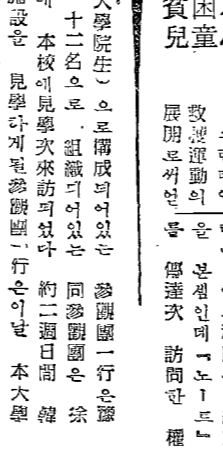 困
貧兒童
救護運動의
展開로써얻
을 본셈인데「노ー트」
를 傳達次 訪問한 權
大學院生)으로構成되어있는 參觀團一行은豫
十二名으로 組織되어있는 同參觀團은 徐
本校에見學次來訪되었다 約二週日間 韓
設을 見學하게될參觀團一行은이날 本大學